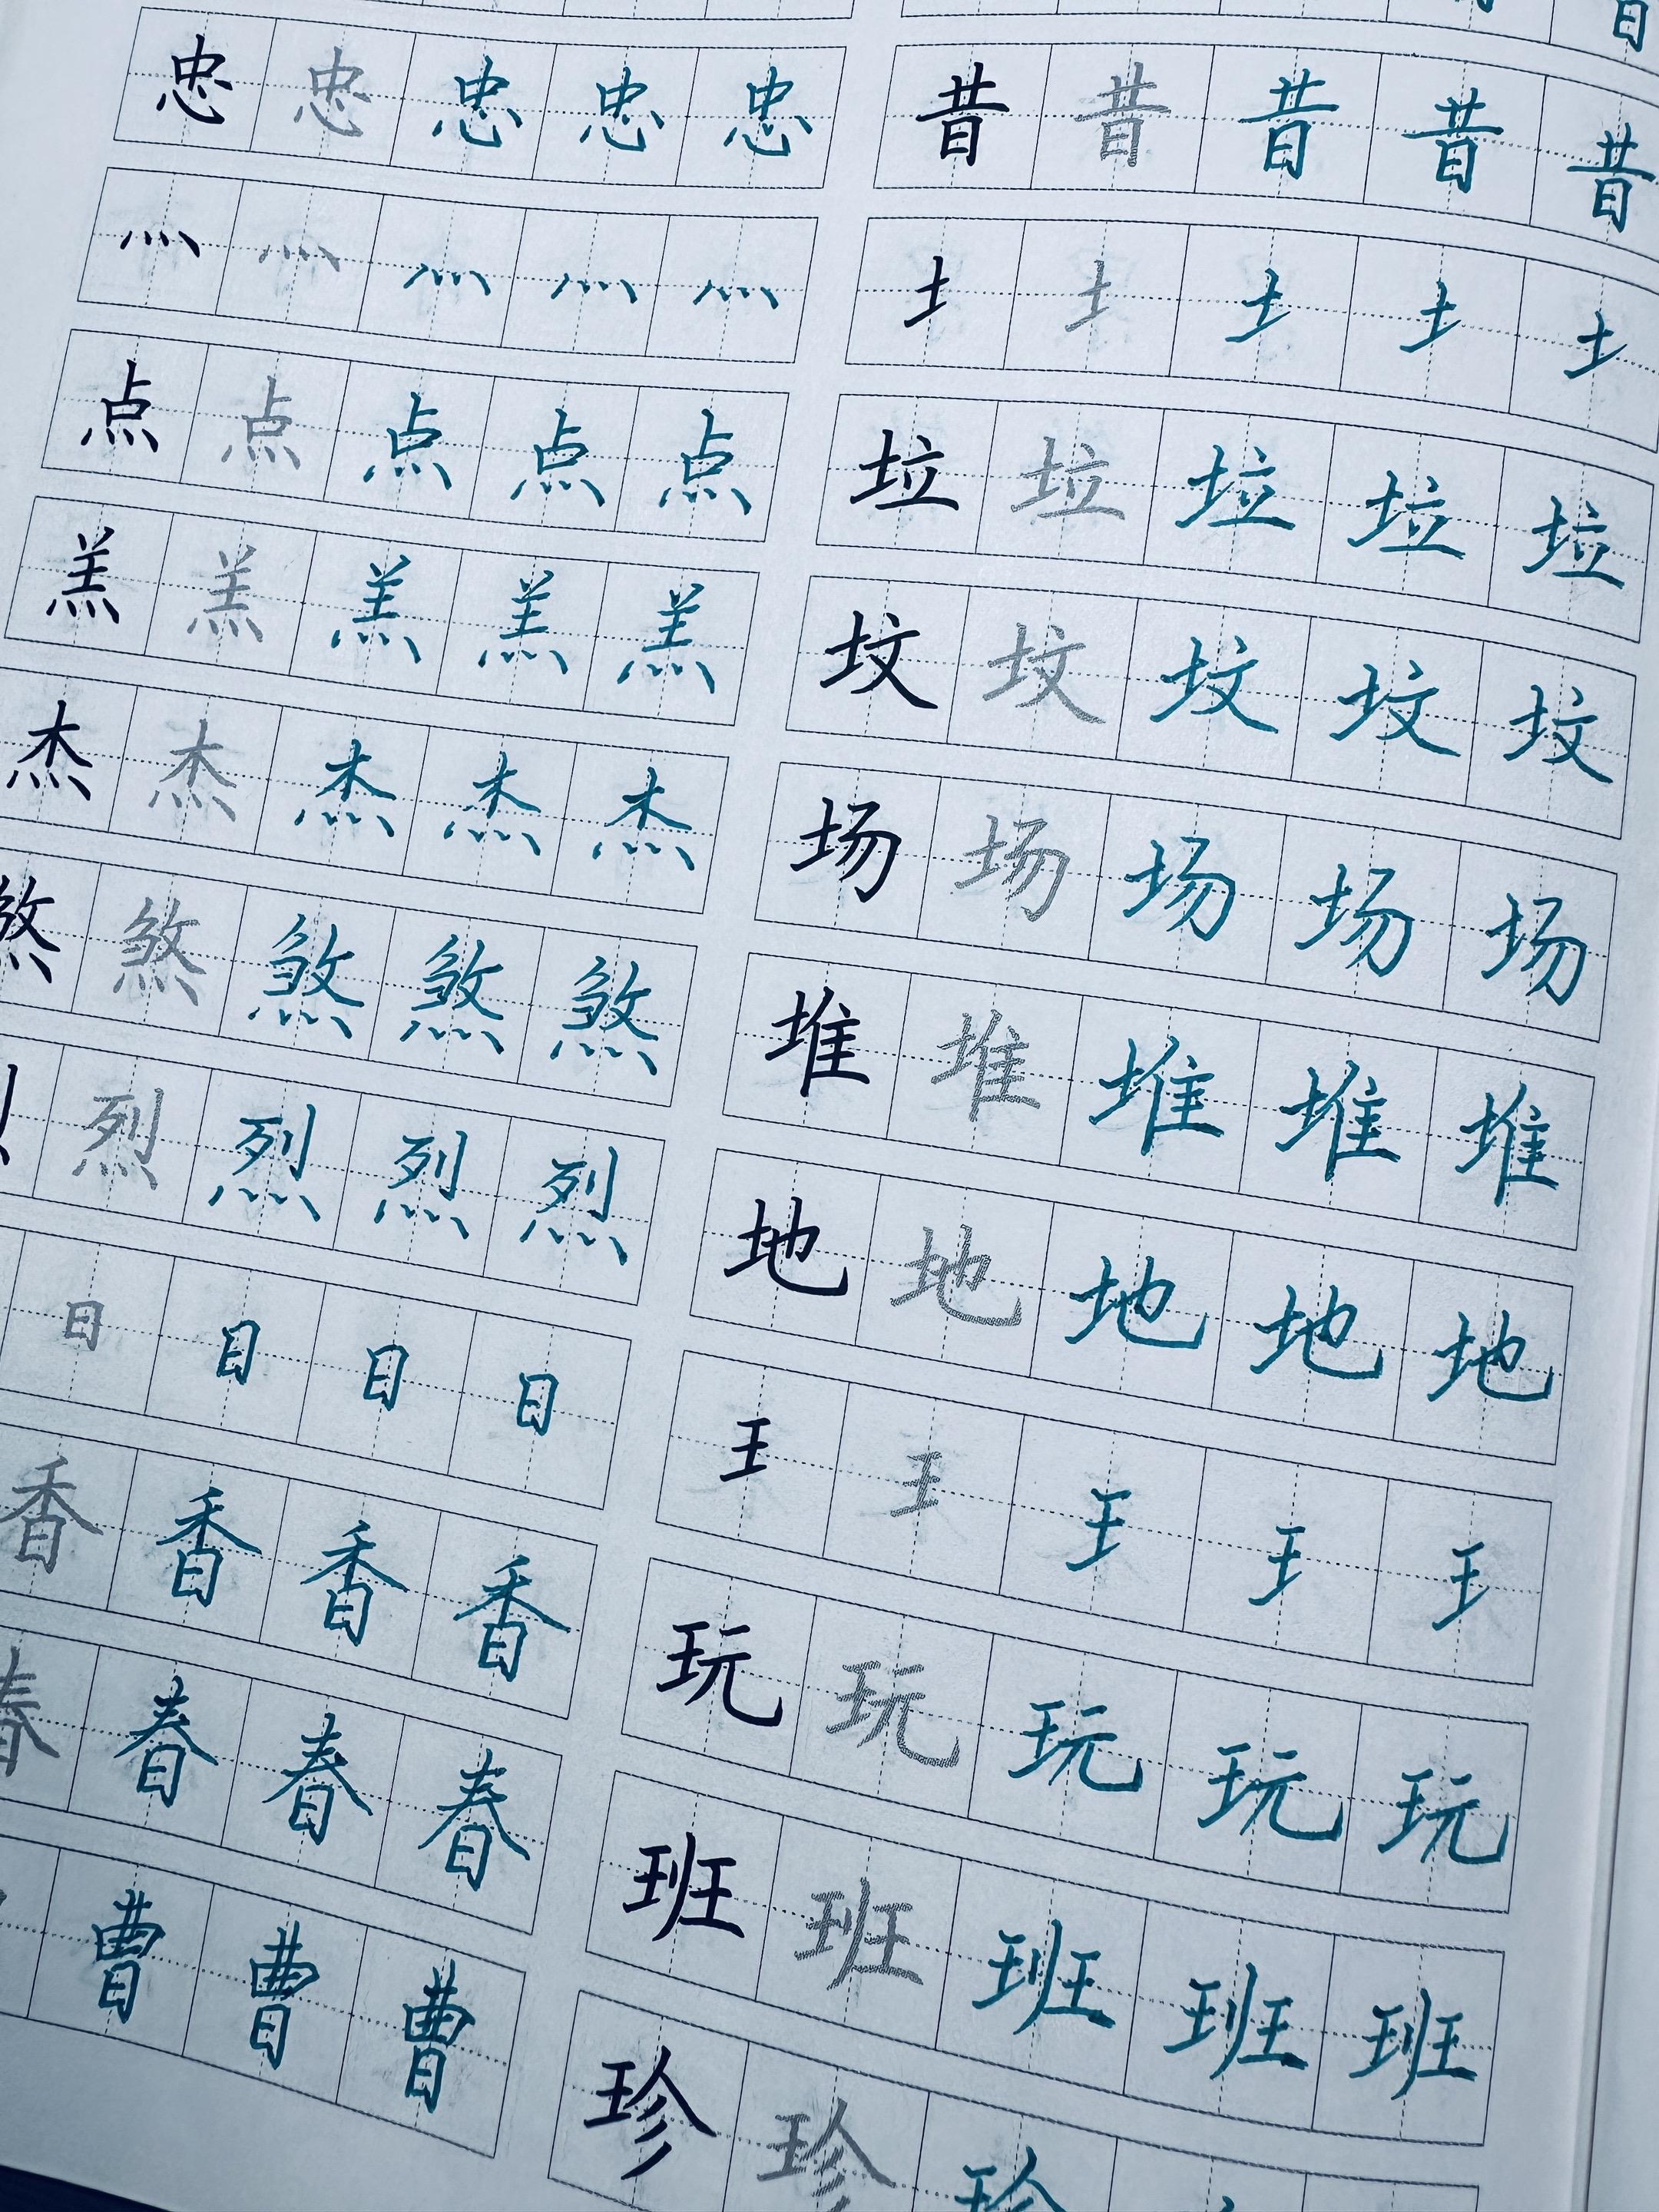 忠 忠 忠 忠 忠
灬 灬 灬 灬 灬
点 点 点 点 点
羔 羔 羔 羔 羔
杰 杰 杰 杰 杰
煞 煞 煞 煞 煞
烈 烈 烈 烈
日 日 日 日
香 香 香 香
春 春 春 春
曹 曹 曹
昔 昔 昔 昔 昔
土 土 土 土 土
垃 垃 垃 垃 垃
坟 坟 坟 坟 坟
场 场 场 场 场
堆 堆 堆 堆 堆
地 地 地 地 地
王 王 王 王 王
玩 玩 玩 玩 玩
班 班 班 班 班
珍 珍 珍